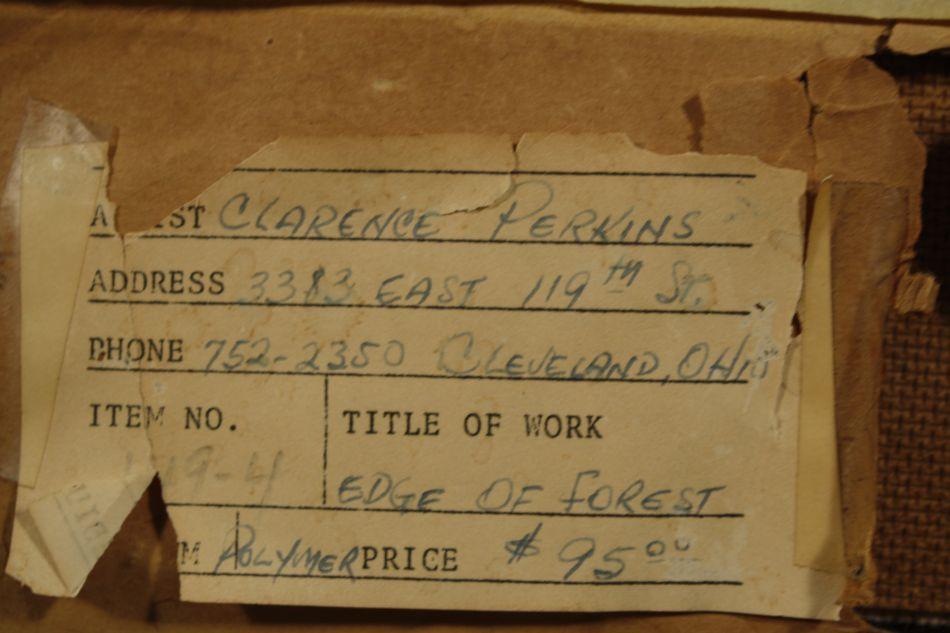 ARTIST CLARENCE PERKINS
ADDRESS 3383 EAST 119TH St.
PHONE 752-2350 CLEVELAND, OHIO
ITEM NO. TITLE OF WORK
19-4 EDGE OF FOREST
M POLYMER PRICE $ 95.00